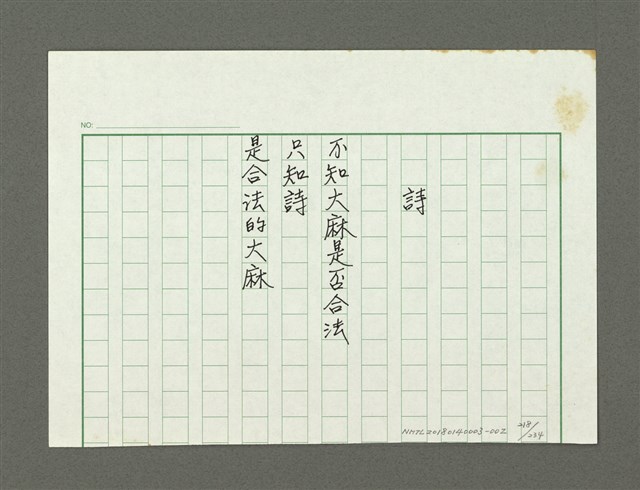 NO:
詩
不知大麻是否合法
只知詩
是合法的大麻
NMTL20180140003-002
218/234